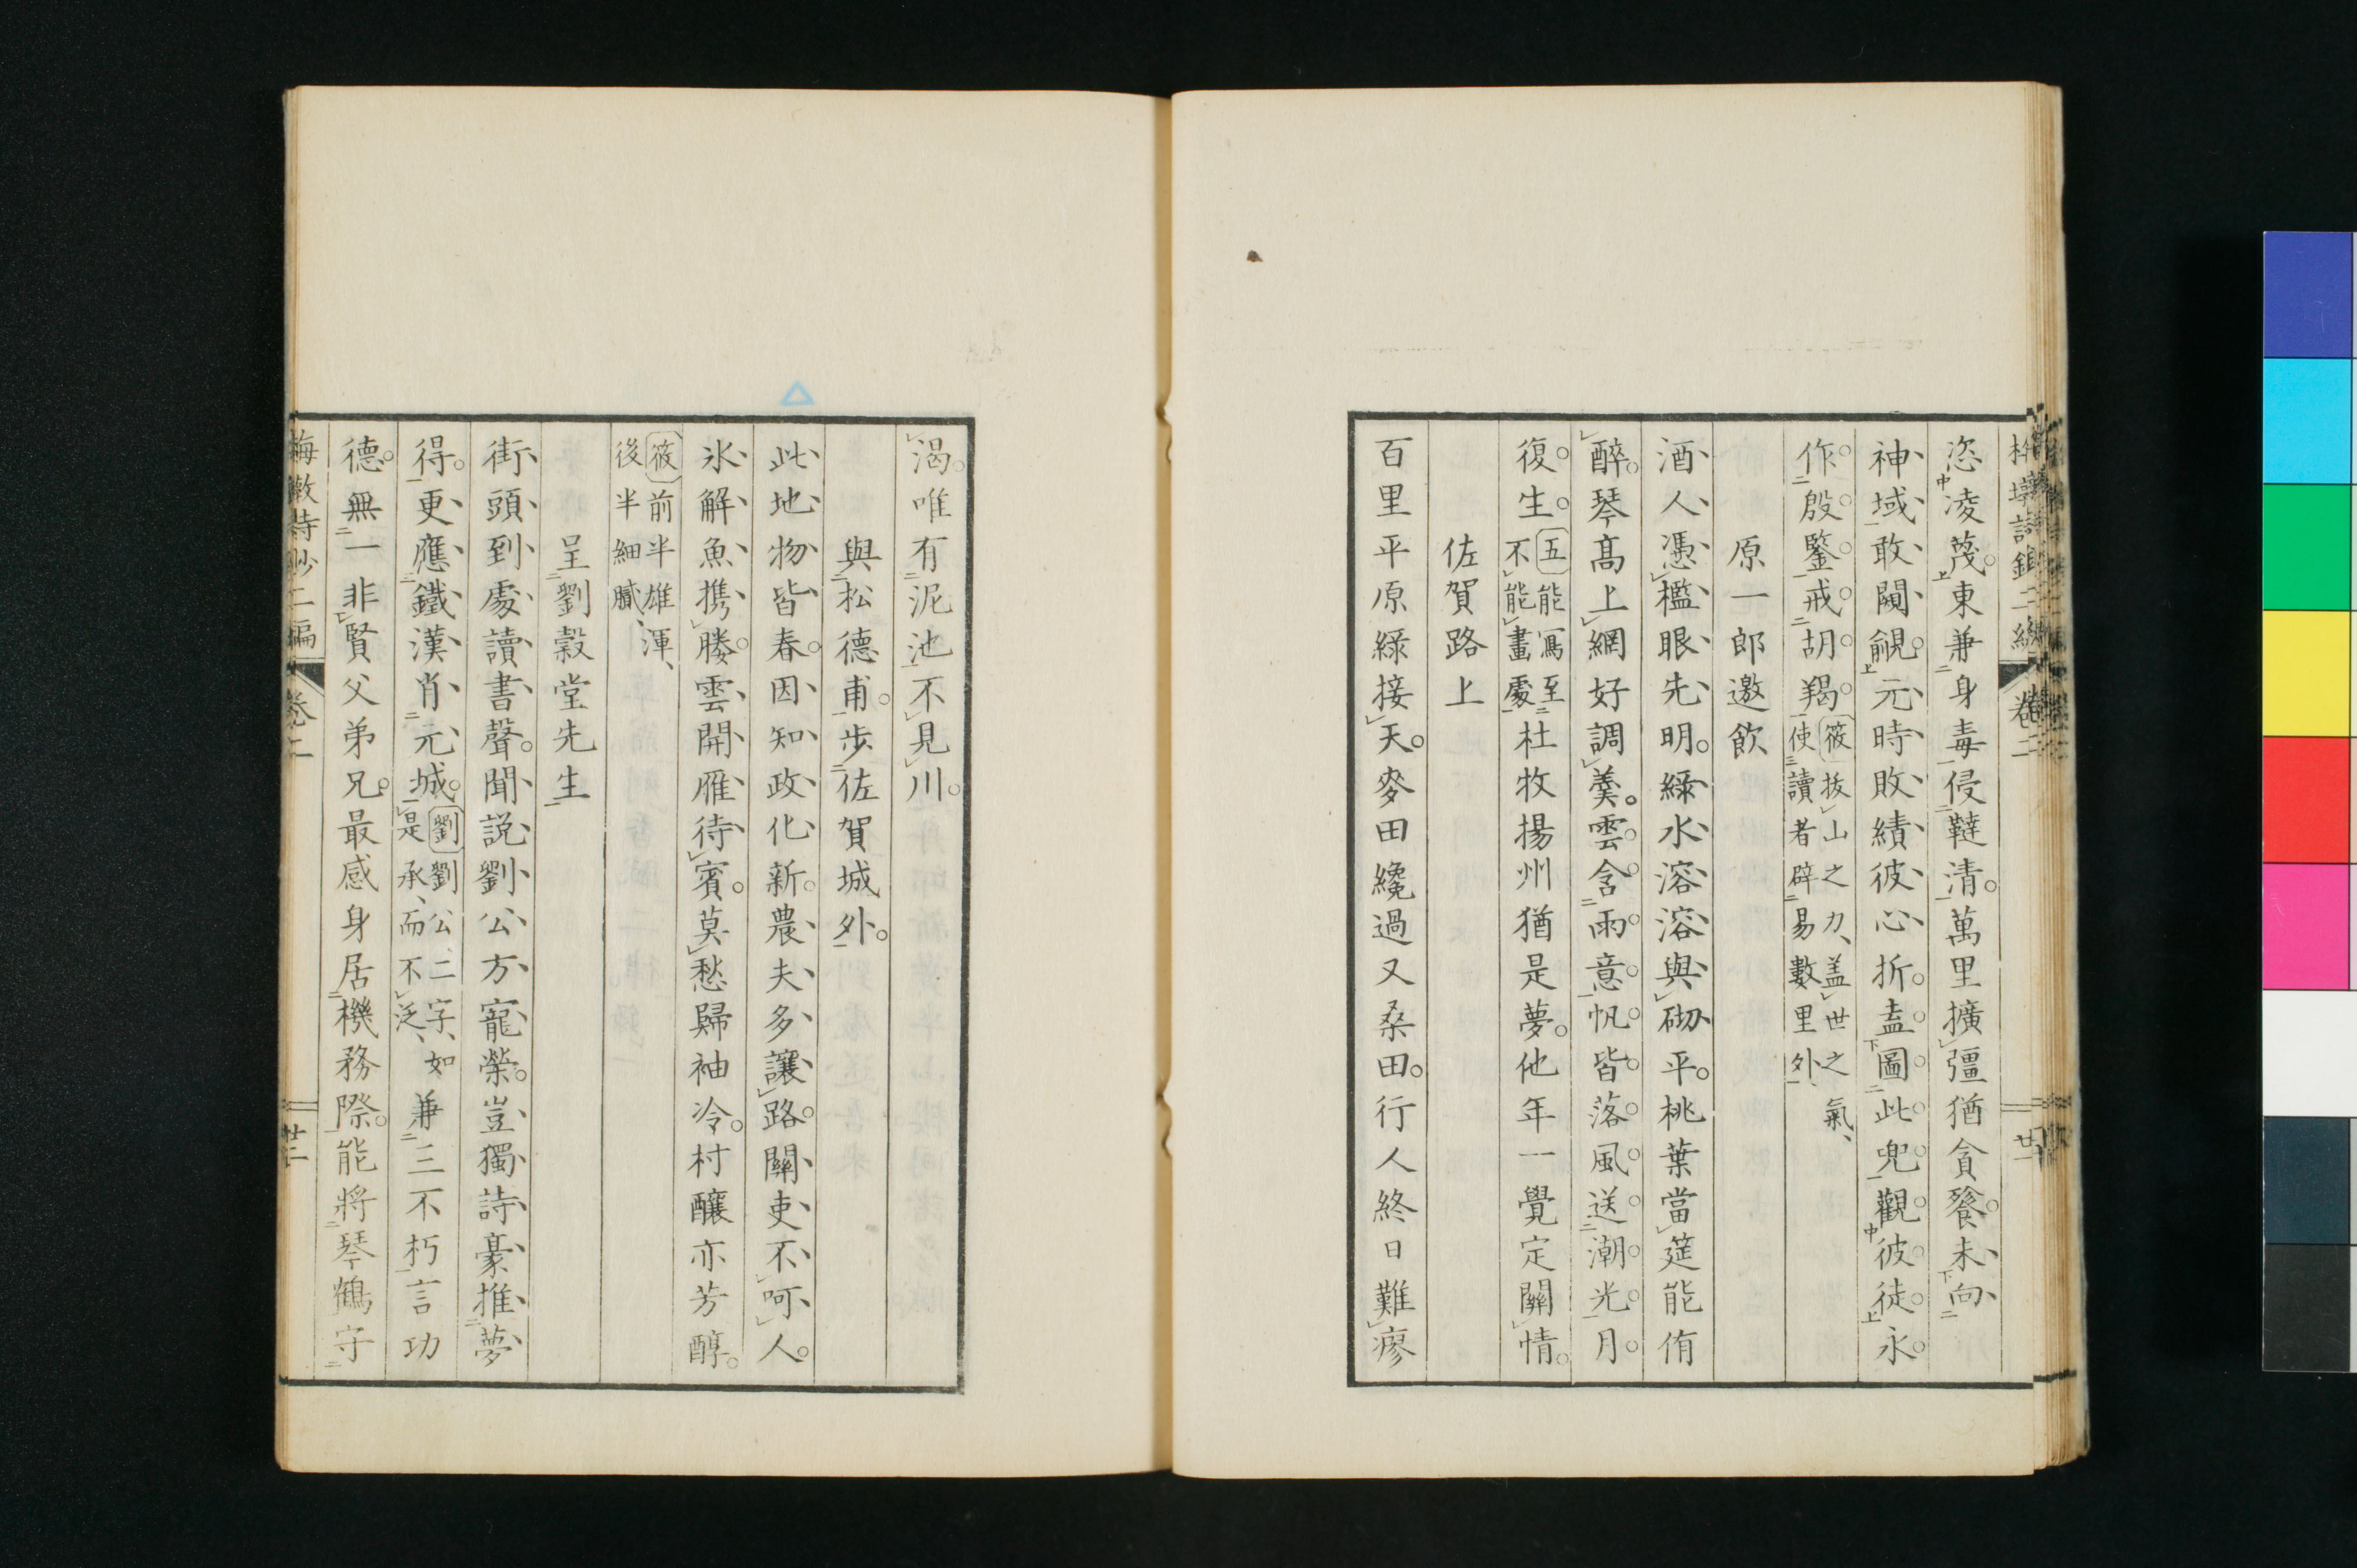 恣凌蔑東兼身毒侵韃清萬里擴彊猶貪餮未向
神域敢闚覦元時敗績彼心折盍圖此兜觀彼徒永
作殷鑒戒胡羯
筱拔山之力、盖世之氣、
使讀者辟易數里外、
原一郎邀飲
酒人憑檻眼先明綠水溶溶與砌平桃葉當筵能侑
醉琴高上網好調羹雲含雨意帆皆落風送潮光月
復生
五能寫至
不能畫處
杜牧揚州猶是夢他年一覺定關情
佐賀路上
百里平原綠接天麥田纔過又桑田行人終日難瘳
渴唯有泥池不見川
與松德甫步佐賀城外
此地物皆春因知政化新農夫多讓路關吏不呵人
氷解魚携媵雲開雁待賓莫愁歸袖冷村釀亦芳醇
筱前半雄渾、
後半細膩、
呈劉穀堂先生
街頭到處讀書聲聞説劉公方寵榮豈獨詩豪推夢
得更應鐵漢肖元城
劉劉公二字、如
是承、而不泛、
兼三不朽言功
德無一非賢父弟兄最感身居機務際能將琴鶴守
梅墩詩鈔二編 卷二 廿二